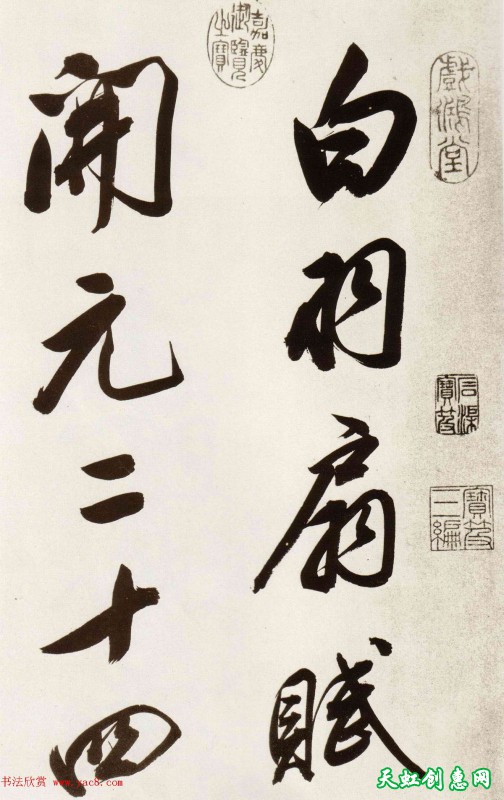 白羽扇賦
開元二十四
戲鴻堂
嘉慶御覽之寶
石渠寶笈
寶笈三編
书法欣赏 www.yac8.com
天虹创惠网